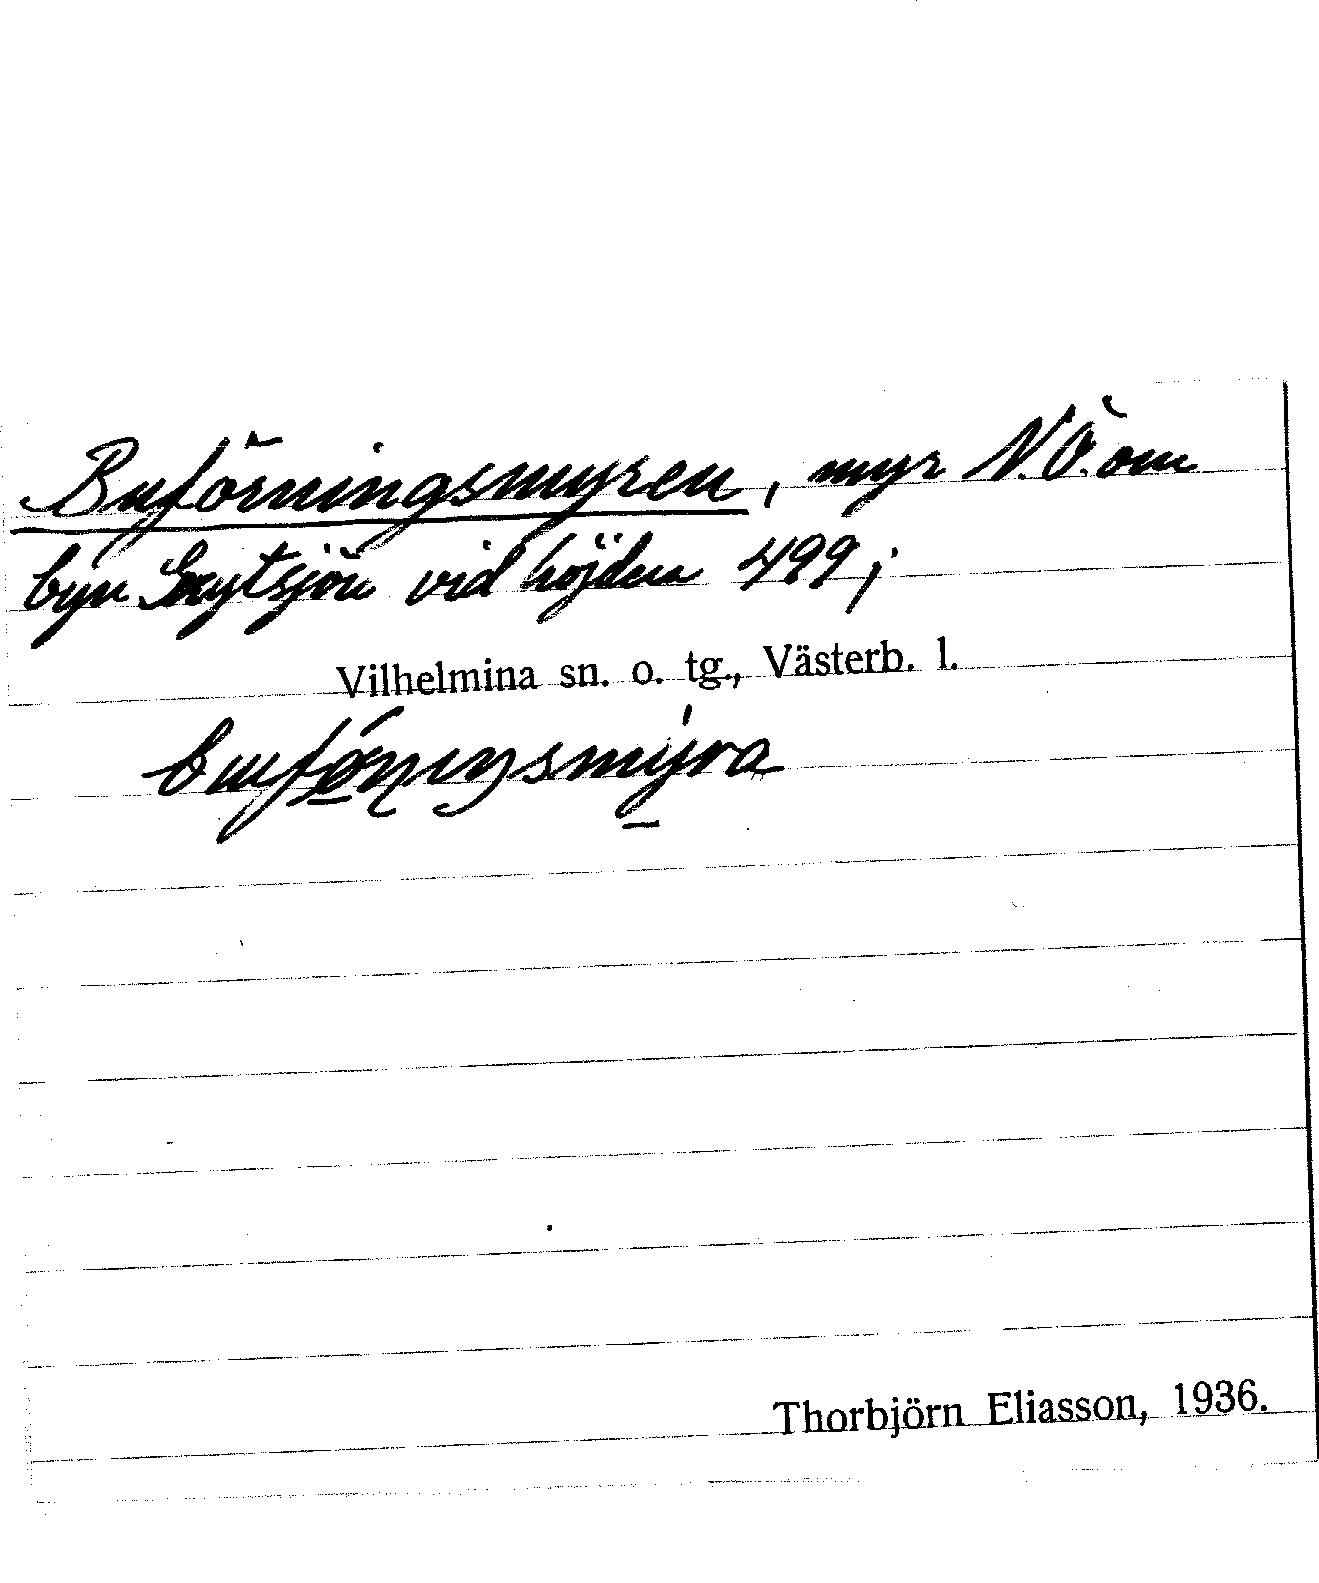 Buförningsmyren, myr N.Ö. om
byn Saxtsjön vid höjden 499;
Vilhelmina sn. o. tg., Västerb. l.
Thorbjörn Eliasson, 1936.